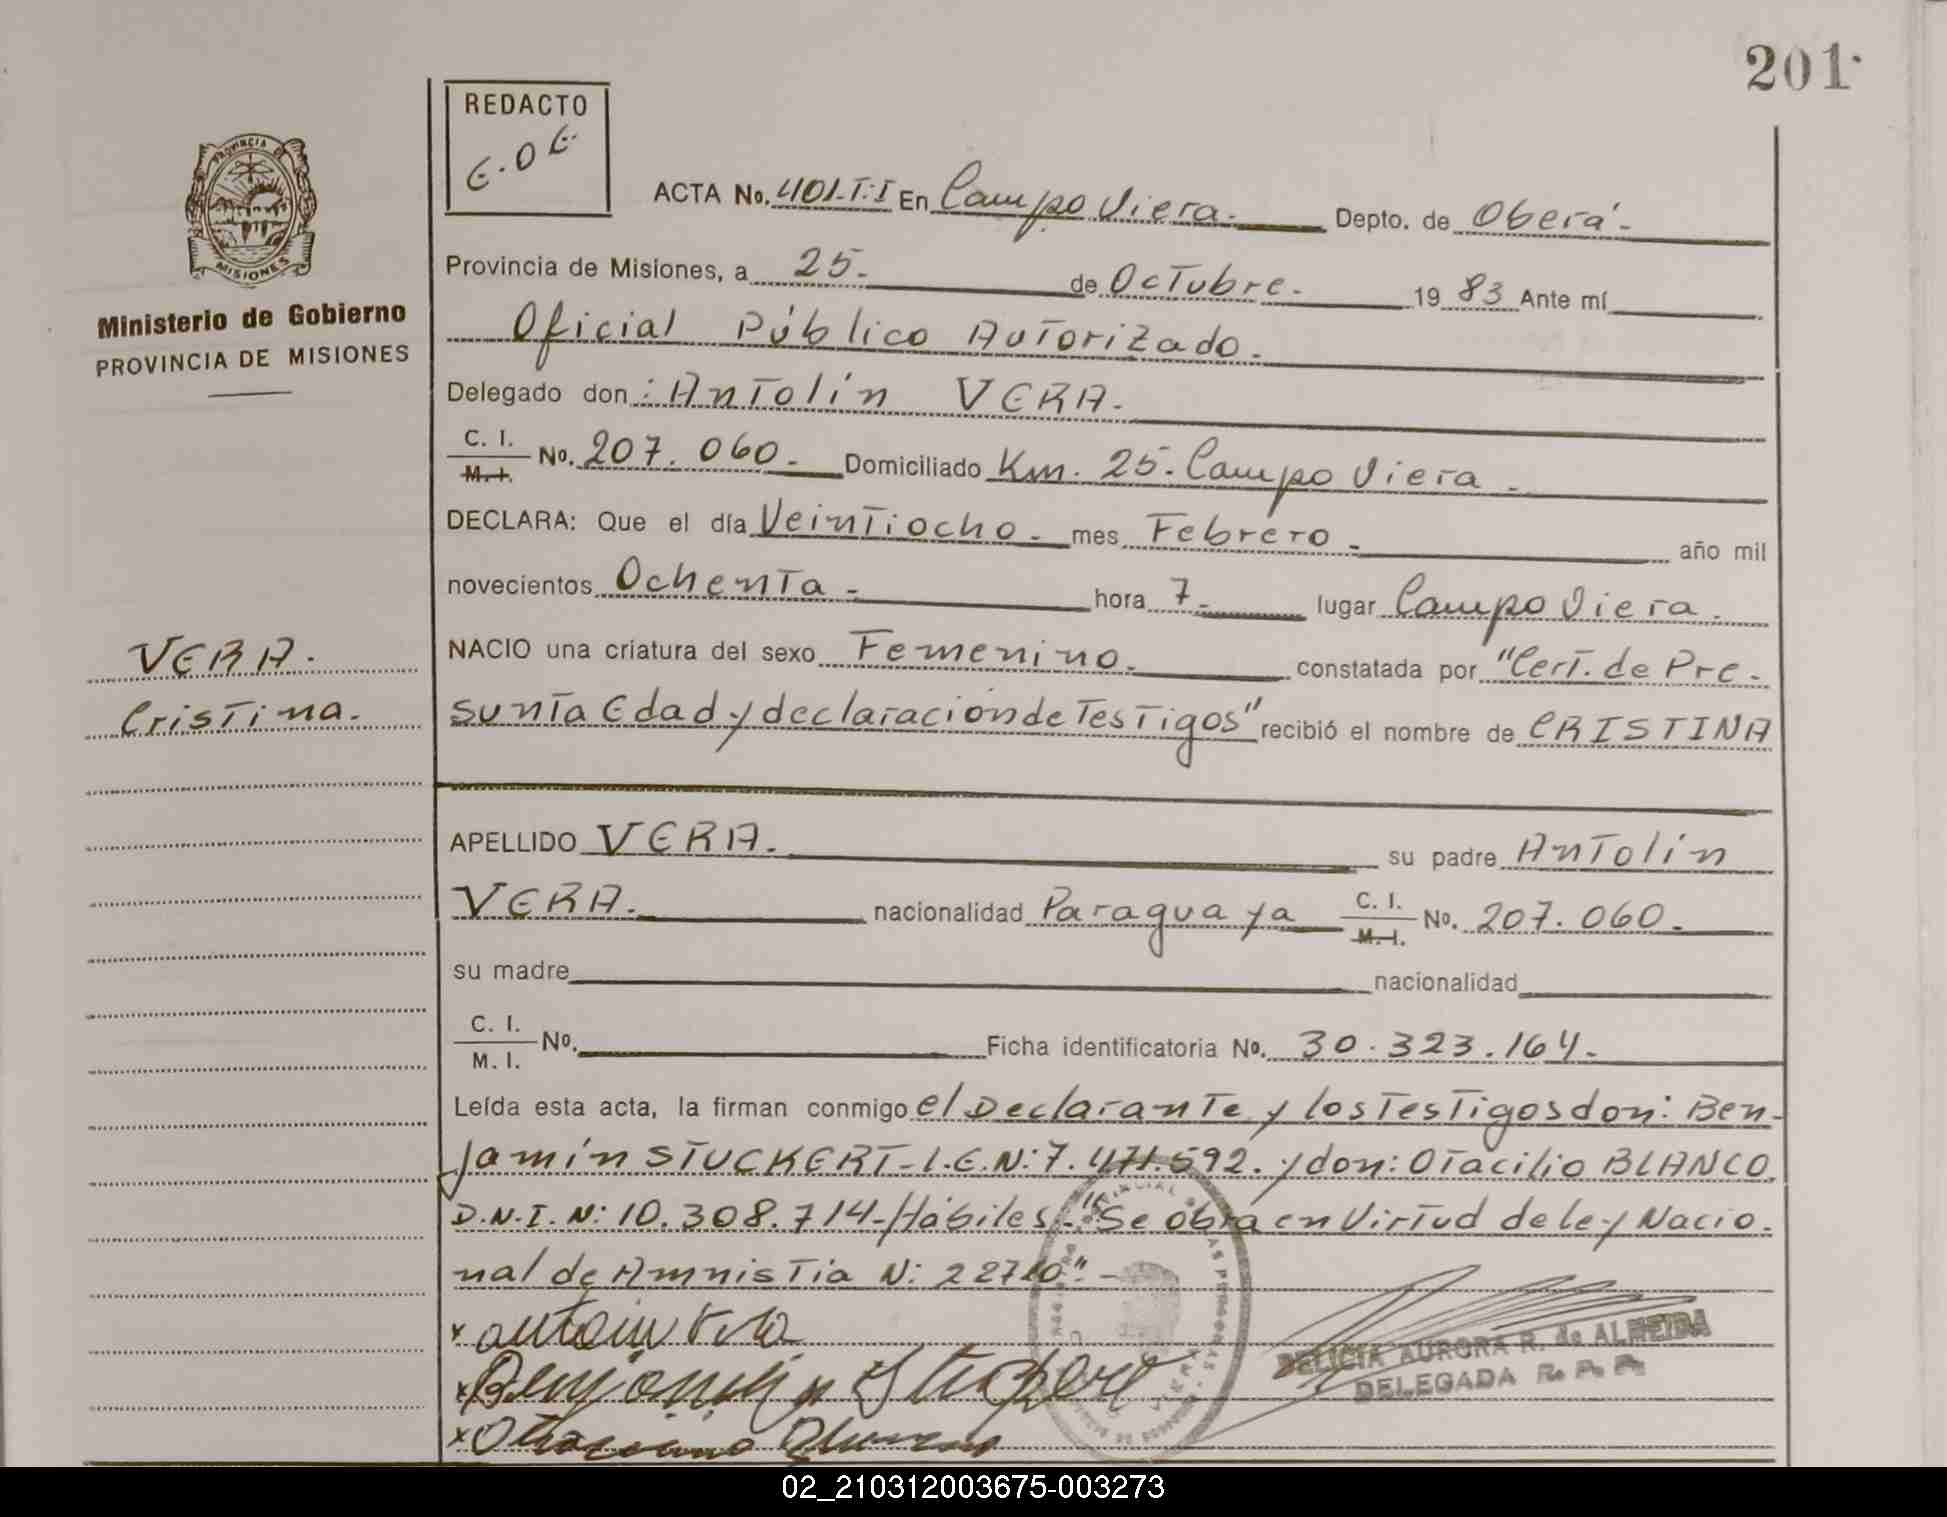 201.
REDACTO
E.O.E.
PROVINCIA DE
MISIONES
Ministerio de Gobierno
PROVINCIA DE MISIONES
ACTA No. 401-T:I En Campo Viera.- Depto. de Oberá.-
Provincia de Misiones, a 25. de Octubre. 1983 Ante mí
Oficial Público Autorizado.
Delegado don: Antolín VERA.
C. I.
M. I. No. 207.060. Domiciliado Km. 25. Campo Viera.
DECLARA: Que el día Veintiocho. mes Febrero. año mil
novecientos Ochenta. hora 7. lugar Campo Viera.
VERA.
Cristina.
NACIO una criatura del sexo Femenino. constatada por "Cert. de Pre-
sunta Edad y declaración de Testigos" recibió el nombre de CRISTINA
APELLIDO VERA. su padre Antolín
VERA. nacionalidad Paraguaya C. I.
M. I. No. 207.060.
su madre nacionalidad
C. I.
M. I. No. Ficha identificatoria No. 30.323.164.
Leída esta acta, la firman conmigo el Declarante y los Testigos don: Ben-
jamín STUCKERT-L.E.N: 7.471.592. y don: Otacilio BLANCO.
D.N.I. N: 10.308.714-Hábiles.-"Se obra en Virtud de ley Nacio-
nal de Amnistía N: 22710".-
DELICIA AURORA R. de ALMEIDA
DELEGADA
02_210312003675-003273